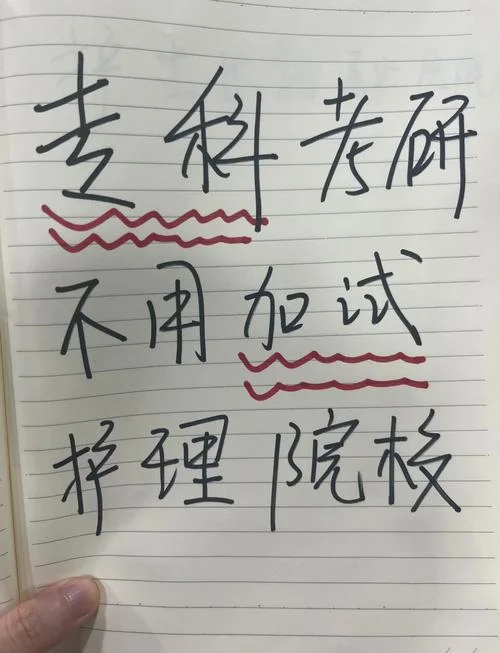 专科考研
不用加试
护理院校